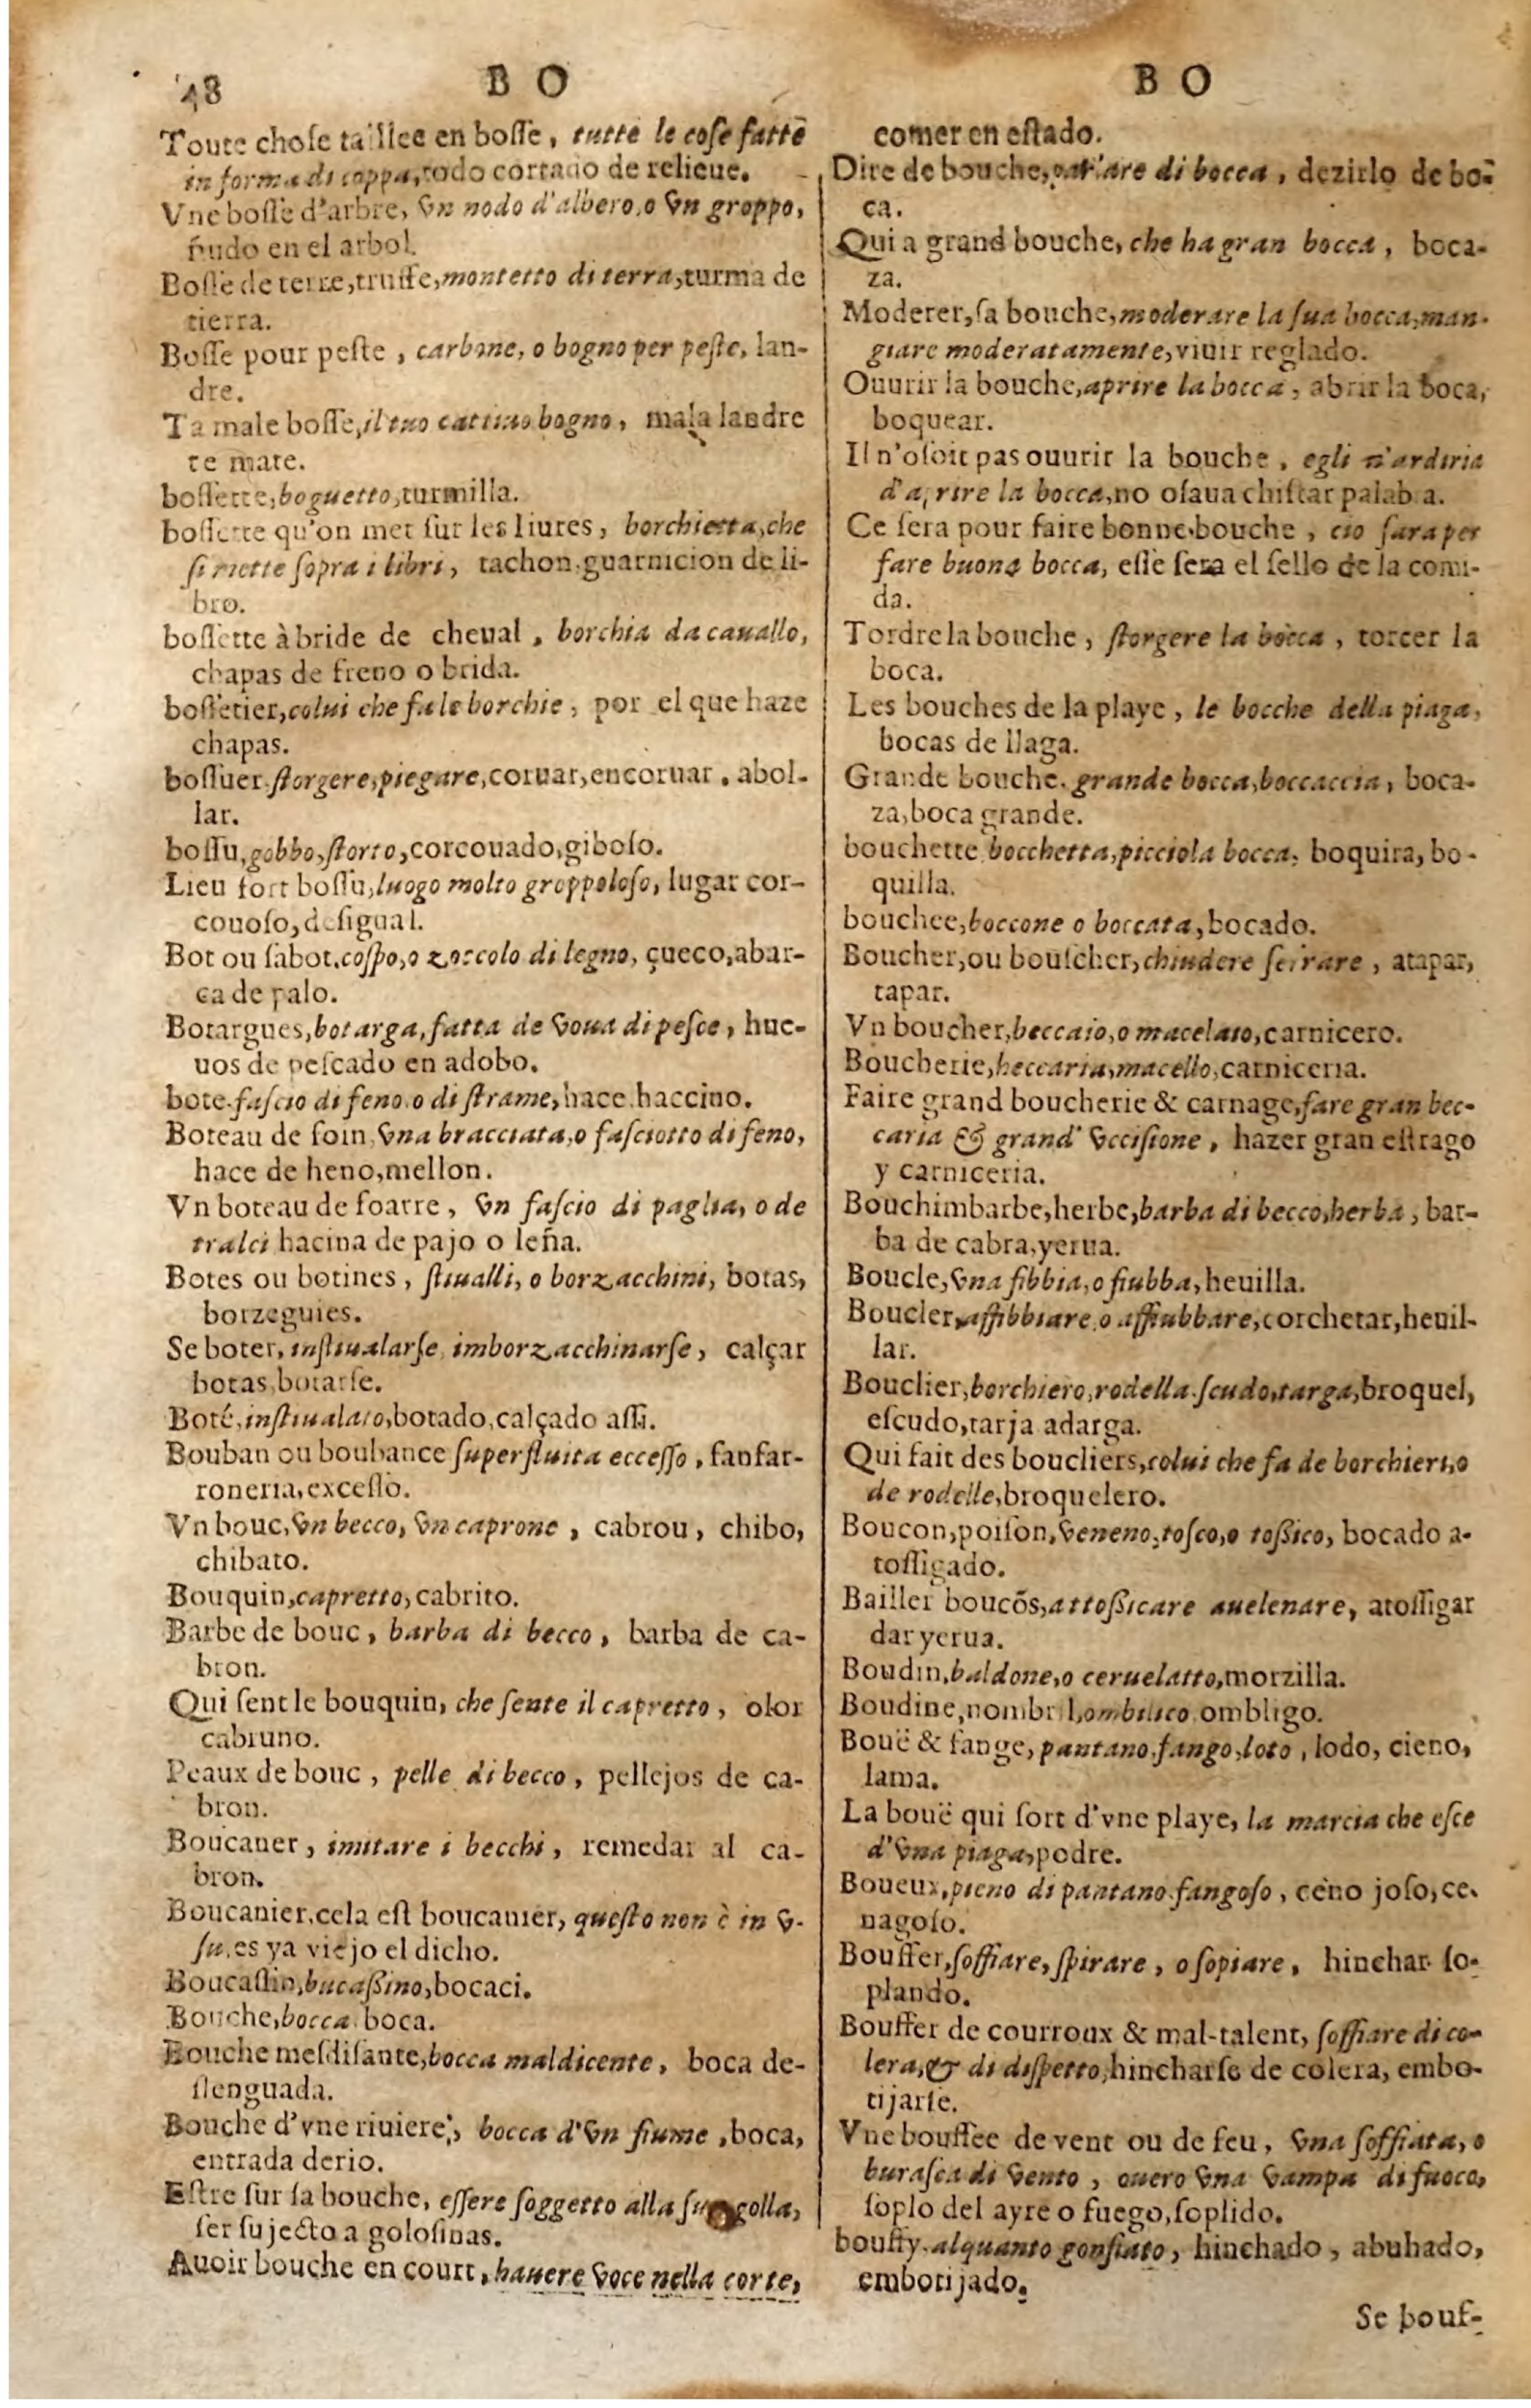 48 B O B O
Toute choſe taillee en boſſe, tutte le coſe fatte
in forma di coppa, todo cortado de relieue.
Vne boſſe d'arbre, vn nodo d'albero, o vn groppo,
ñudo en el arbol.
Boſſe de terre, truffe, montetto di terra, turma de
tierra.
Boſſe pour peſte, carbone, o bogno per peſte, lan-
dre.
Ta male boſſe, il tuo cattiuo bogno, mala landre
te mate.
boſſette, boguetto, turmilla.
boſſette qu'on met ſur les liures, borchietta, che
ſi mette ſopra i libri, tachon, guarnicion de li-
bro.
boſſette à bride de cheual, borchia da cauallo,
chapas de freno o brida.
boſſetier, colui che fa le borchie, por el que haze
chapas.
boſſuer, ſtorgere, piegare, coruar, encoruar, abol-
lar.
boſſu, gobbo, ſtorto, corcouado, giboſo.
Lieu fort boſſu, luogo molto groppoloſo, lugar cor-
couoſo, deſigual.
Bot ou ſabot, coſpo, o zoccolo di legno, çueco, abar-
ca de palo.
Botargues, botarga, fatta de voua di peſce, hue-
uos de peſcado en adobo.
bote, faſcio di feno o di ſtrame, hace, haccino.
Boteau de foin, vna bracciata, o faſciotto di feno,
hace de heno, mellon.
Vn boteau de foarre, vn faſcio di paglia, o de
tralci hacina de pajo o leña.
Botes ou botines, ſtiualli, o borzacchini, botas,
borzeguies.
Se boter, inſtiualarſe, imborzacchinarſe, calçar
botas, botarſe.
Boté, inſtiualato, botado, calçado aſſi.
Bouban ou boubance ſuperfluita ecceſſo, fanfar-
roneria, exceſſo.
Vn bouc, vn becco, vn caprone, cabrou, chibo,
chibato.
Bouquin, capretto, cabrito.
Barbe de bouc, barba di becco, barba de ca-
bron.
Qui ſent le bouquin, che ſente il capretto, olor
cabruno.
Peaux de bouc, pelle di becco, pellejos de ca-
bron.
Boucaner, imitare i becchi, remedar al ca-
bron.
Boucanier, cela eſt boucanier, queſto non è in v-
ſu, es ya viejo el dicho.
Boucaſſin, bucaßino, bocaci.
Bouche, bocca, boca.
Bouche meſdiſante, bocca maldicente, boca de-
ſlenguada.
Bouche d'vne riuiere, bocca d'vn fiume, boca,
entrada derio.
Eſtre ſur ſa bouche, eſſere ſoggetto alla ſua golla,
ſer ſujecto a goloſinas.
Auoir bouche en court, hauere voce nella corte,
comer en eſtado.
Dire de bouche, parlare di bocca, dezirlo de bo-
ca.
Qui a grand bouche, che ha gran bocca, boca-
za.
Moderer, ſa bouche, moderare la ſua bocca, man-
giare moderatamente, viuir reglado.
Ouurir la bouche, aprire la bocca, abrir la boca,
boquear.
Il n'oſoit pas ouurir la bouche, egli n'ardiria
d'aprire la bocca, no oſaua chiſtar palabra.
Ce ſera pour faire bonne bouche, cio ſara per
fare buona bocca, eſſe ſera el ſello de la comi-
da.
Tordre la bouche, ſtorgere la bocca, torcer la
boca.
Les bouches de la playe, le bocche della piaga,
bocas de llaga.
Grande bouche, grande bocca, boccaccia, boca-
za, boca grande.
bouchette, bocchetta, picciola bocca, boquira, bo-
quilla.
bouchee, boccone o boccata, bocado.
Boucher, ou bouſcher, chiudere ſerrare, atapar,
tapar.
Vn boucher, beccaio, o macelaio, carnicero.
Boucherie, beccaria, macello, carniceria.
Faire grand boucherie & carnage, fare gran bec-
caria & grand' vcciſione, hazer gran eſtrago
y carniceria.
Bouchimbarbe, herbe, barba di becco, herba, bar-
ba de cabra, yerua.
Boucle, vna fibbia, o fiubba, heuilla.
Boucler, affibbiare, o affiubbare, corchetar, heuil-
lar.
Bouclier, borchiero, rodella, ſcudo, targa, broquel,
eſcudo, tarja adarga.
Qui fait des boucliers, colui che fa de borchieri, o
de rodelle, broquelero.
Boucon, poiſon, veneno, toſco, o toßico, bocado a-
toſſigado.
Bailler boucõs, attoßicare auelenare, atoſſigar
dar yerua.
Boudin, baldone, o ceruelatto, morzilla.
Boudine, nombril, ombilico, ombligo.
Bouë & fange, pantano, fango, loto, lodo, cieno,
lama.
La bouë qui ſort d'vne playe, la marcia che eſce
d'vna piaga, podre.
Boueux, pieno di pantano, fangoſo, ceno joſo, ce-
nagoſo.
Bouffer, ſoffiare, ſpirare, o ſopiare, hinchar ſo-
plando.
Bouffer de courroux & mal-talent, ſoffiare di co-
lera, & di diſpetto, hincharſe de colera, embo-
tijarſe.
Vne bouffee de vent ou de feu, vna ſoffiata, o
buraſca di vento, ouero vna vampa di fuoco,
ſoplo del ayre o fuego, ſoplido.
bouffy, alquanto gonfiato, hinchado, abuhado,
embotijado.
Se bouf-